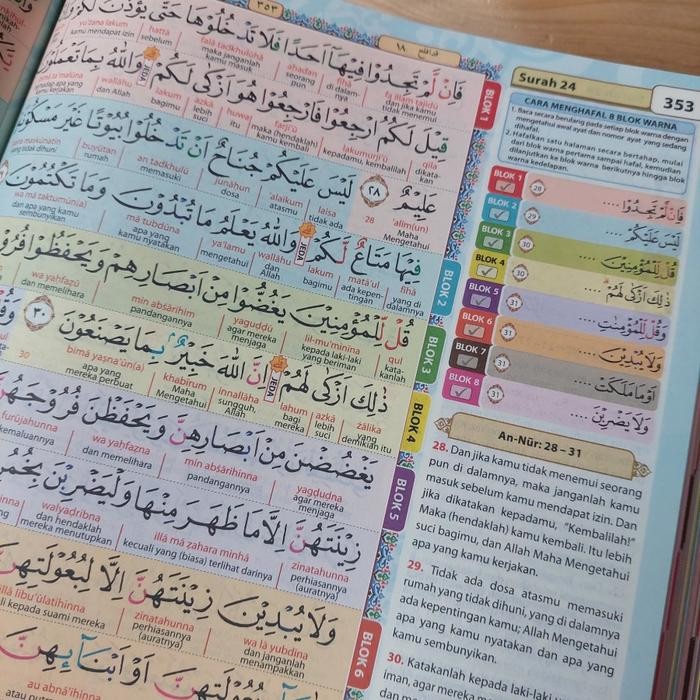 ٣٥٣
قد افلح ١٨
Surah 24
353
CARA MENGHAFAL 8 BLOK WARNA
1. Baca secara berulang pada setiap blok warna dengan
mengetahui awal ayat dan nomor ayat yang sedang
dihafal.
2. Hafalkan satu halaman secara bertahap, mulai
dari blok warna pertama sampai hafal, kemudian
dilanjutkan ke blok warna berikutnya hingga blok
warna kedelapan.
BLOK 1
28
فَاِنْ لَّمْ تَجِدُوْا ....
BLOK 2
29
لَيْسَ عَلَيْكُمْ ....
BLOK 3
30
قُلْ لِّلْمُؤْمِنِيْنَ ....
BLOK 4
30
ذٰلِكَ اَزْكٰى لَهُمْ ....
BLOK 5
31
وَقُلْ لِّلْمُؤْمِنٰتِ ....
BLOK 6
31
وَلَا يُبْدِيْنَ ....
BLOK 7
31
اَوْ مَا مَلَكَتْ ....
BLOK 8
31
وَلَا يَضْرِبْنَ ....
An-Nūr: 28 – 31
28. Dan jika kamu tidak menemui seorang
pun di dalamnya, maka janganlah kamu
masuk sebelum kamu mendapat izin. Dan
jika dikatakan kepadamu, "Kembalilah!"
Maka (hendaklah) kamu kembali. Itu lebih
suci bagimu, dan Allah Maha Mengetahui
apa yang kamu kerjakan.
29. Tidak ada dosa atasmu memasuki
rumah yang tidak dihuni, yang di dalamnya
ada kepentingan kamu; Allah Mengetahui
apa yang kamu nyatakan dan apa yang
kamu sembunyikan.
30. Katakanlah kepada laki-laki
iman, agar mereka
فَاِنْ لَّمْ تَجِدُوْا فِيْهَآ اَحَدًا فَلَا تَدْخُلُوْهَا حَتّٰى يُؤْذَنَ لَكُمْ
fa illam tajidū fīhā aḥadan falā tadkhulūhā ḥattā yu'żana lakum
dan jika kamu di dalam- seorang maka janganlah sebelum kamu mendapat izin
tidak menemui nya pun kamu masuk
BLOK 1
قِيْلَ لَكُمُ ارْجِعُوْا فَارْجِعُوْا هُوَ اَزْكٰى لَكُمْ وَاللّٰهُ بِمَا تَعْمَلُوْنَ
qīla lakumurji'ū farji'ū huwa azkā lakum wallāhu
dikata- kepadamu, kembalilah maka (hendaklah) itu lebih bagimu dan Allah
kan kamu kembali suci
عَلِيْمٌ ٢٨ لَيْسَ عَلَيْكُمْ جُنَاحٌ اَنْ تَدْخُلُوْا بُيُوْتًا غَيْرَ مَسْكُوْنَةٍ
'alīm(un) 28 laisa alaikum junāḥun an tadkhulū buyūtan
Maha tidak ada atasmu dosa memasuki rumah
Mengetahui
BLOK 2
فِيْهَا مَتَاعٌ لَّكُمْ وَاللّٰهُ يَعْلَمُ مَا تُبْدُوْنَ وَمَا تَكْتُمُوْنَ
fīhā matā'ul lakum wallāhu ya'lamu mā tubdūna wa mā taktumūn(a)
yang di ada kepen- bagimu dan mengetahui apa yang dan apa yang kamu
dalamnya tingan Allah kamu nyatakan sembunyikan
قُلْ لِّلْمُؤْمِنِيْنَ يَغُضُّوْا مِنْ اَبْصَارِهِمْ وَيَحْفَظُوْا
qul lil-mu'minīna yaguḍḍū min abṣārihim wa yaḥfaẓū
kata- kepada laki-laki agar mereka pandangannya dan memelihara
kanlah yang beriman menjaga
BLOK 3
ذٰلِكَ اَزْكٰى لَهُمْ اِنَّ اللّٰهَ خَبِيْرٌۢ بِمَا يَصْنَعُوْنَ ٣٠
żālika azkā lahum innallāha khabīrum bimā yaṣna'ūn(a) 30
yang lebih bagi sungguh, Maha apa yang
demikian itu suci mereka Allah Mengetahui mereka perbuat
BLOK 4
يَغْضُضْنَ مِنْ اَبْصَارِهِنَّ وَيَحْفَظْنَ فُرُوْجَهُنَّ
yagḍuḍna min abṣārihinna wa yaḥfaẓna furūjahunna
agar mereka pandangannya dan memelihara
menjaga
BLOK 5
زِيْنَتَهُنَّ اِلَّا مَا ظَهَرَ مِنْهَا وَلْيَضْرِبْنَ
zīnatahunna illā mā ẓahara minhā walyaḍribna
perhiasannya kecuali yang (biasa) terlihat darinya dan hendaklah
(auratnya) mereka menutupkan
وَلَا يُبْدِيْنَ زِيْنَتَهُنَّ اِلَّا لِبُعُوْلَتِهِنَّ
wa lā yubdīna zīnatahunna illā libu'ūlatihinna
dan janganlah perhiasannya kepada suami mereka
menampakkan (auratnya)
BLOK 6
اَوْ اَبْنَاۤىِٕهِنَّ
au abnā'ihinna